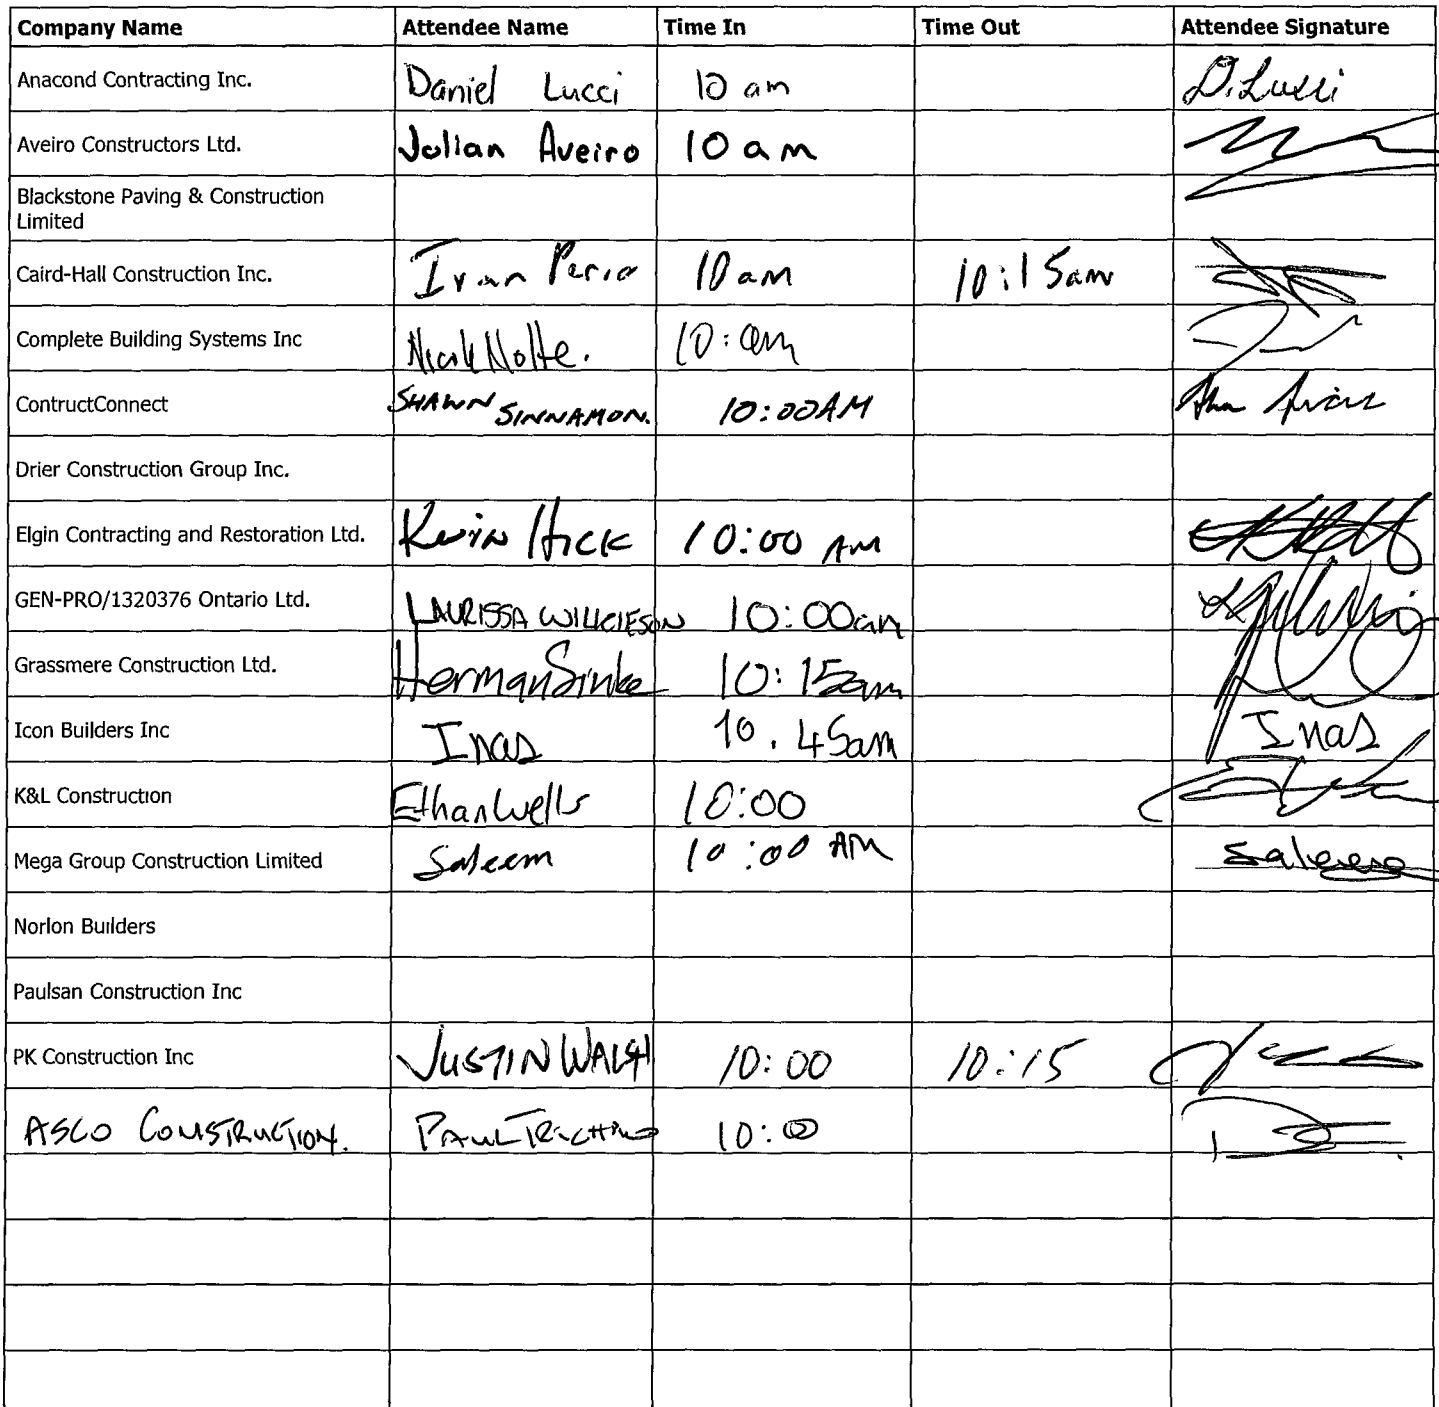 Company Name Attendee Name Time In Time Out Attendee Signature
Anacond Contracting Inc. Daniel Lucci 10 am D. Lucci
Aveiro Constructors Ltd. Julian Aveiro 10 am
Blackstone Paving & Construction
Limited
Caird-Hall Construction Inc. Ivan 10 am 10:15am
Complete Building Systems Inc Nick Nolte. 10:am
ContructConnect SHAWN SINNAMON. 10:00AM
Drier Construction Group Inc.
Elgin Contracting and Restoration Ltd. Kevin Hick 10:00 AM
GEN-PRO/1320376 Ontario Ltd. LAURISSA WILKIESON 10:00am
Grassmere Construction Ltd. Herman Sinke 10:15am
Icon Builders Inc Inas 10.45am Inas
K&L Construction Ethan Wells 10:00
Mega Group Construction Limited Saleem 10:00 AM Saleem
Norlon Builders
Paulsan Construction Inc
PK Construction Inc JUSTIN WALSH 10:00 10:15
ASCO CONSTRUCTION. PAUL 10:00